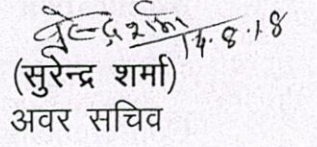 14.8.18
(सुरेन्द्र शर्मा)
अवर सचिव